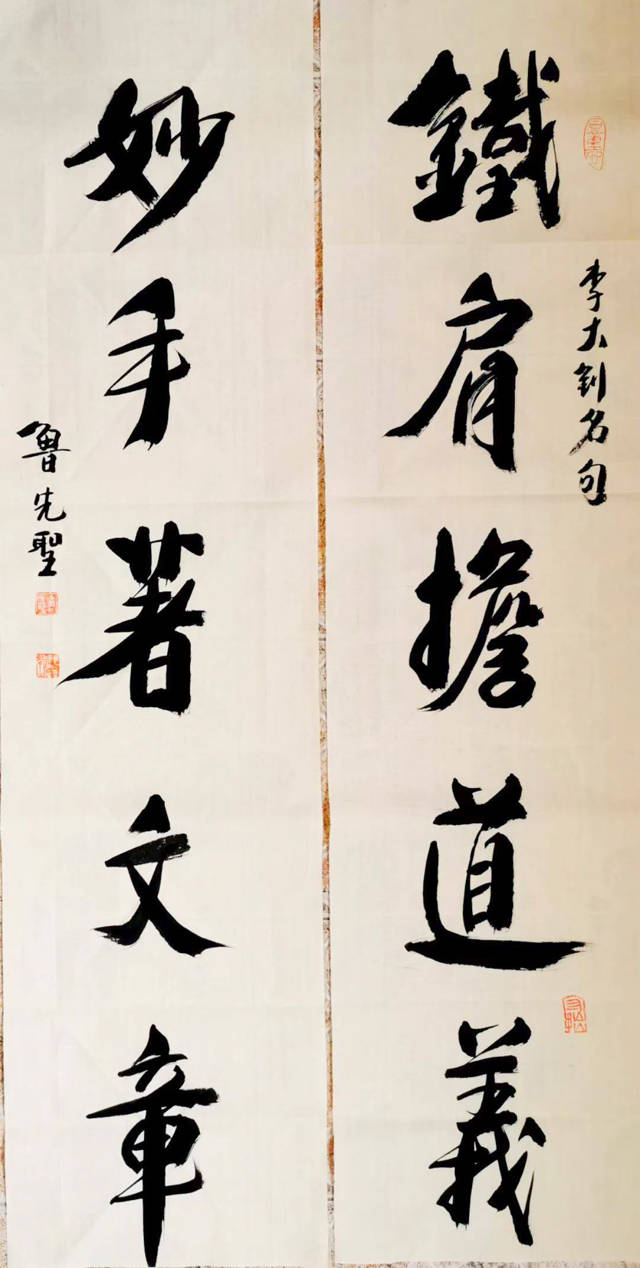 李大钊名句
鐵肩擔道義
妙手著文章
魯先聖